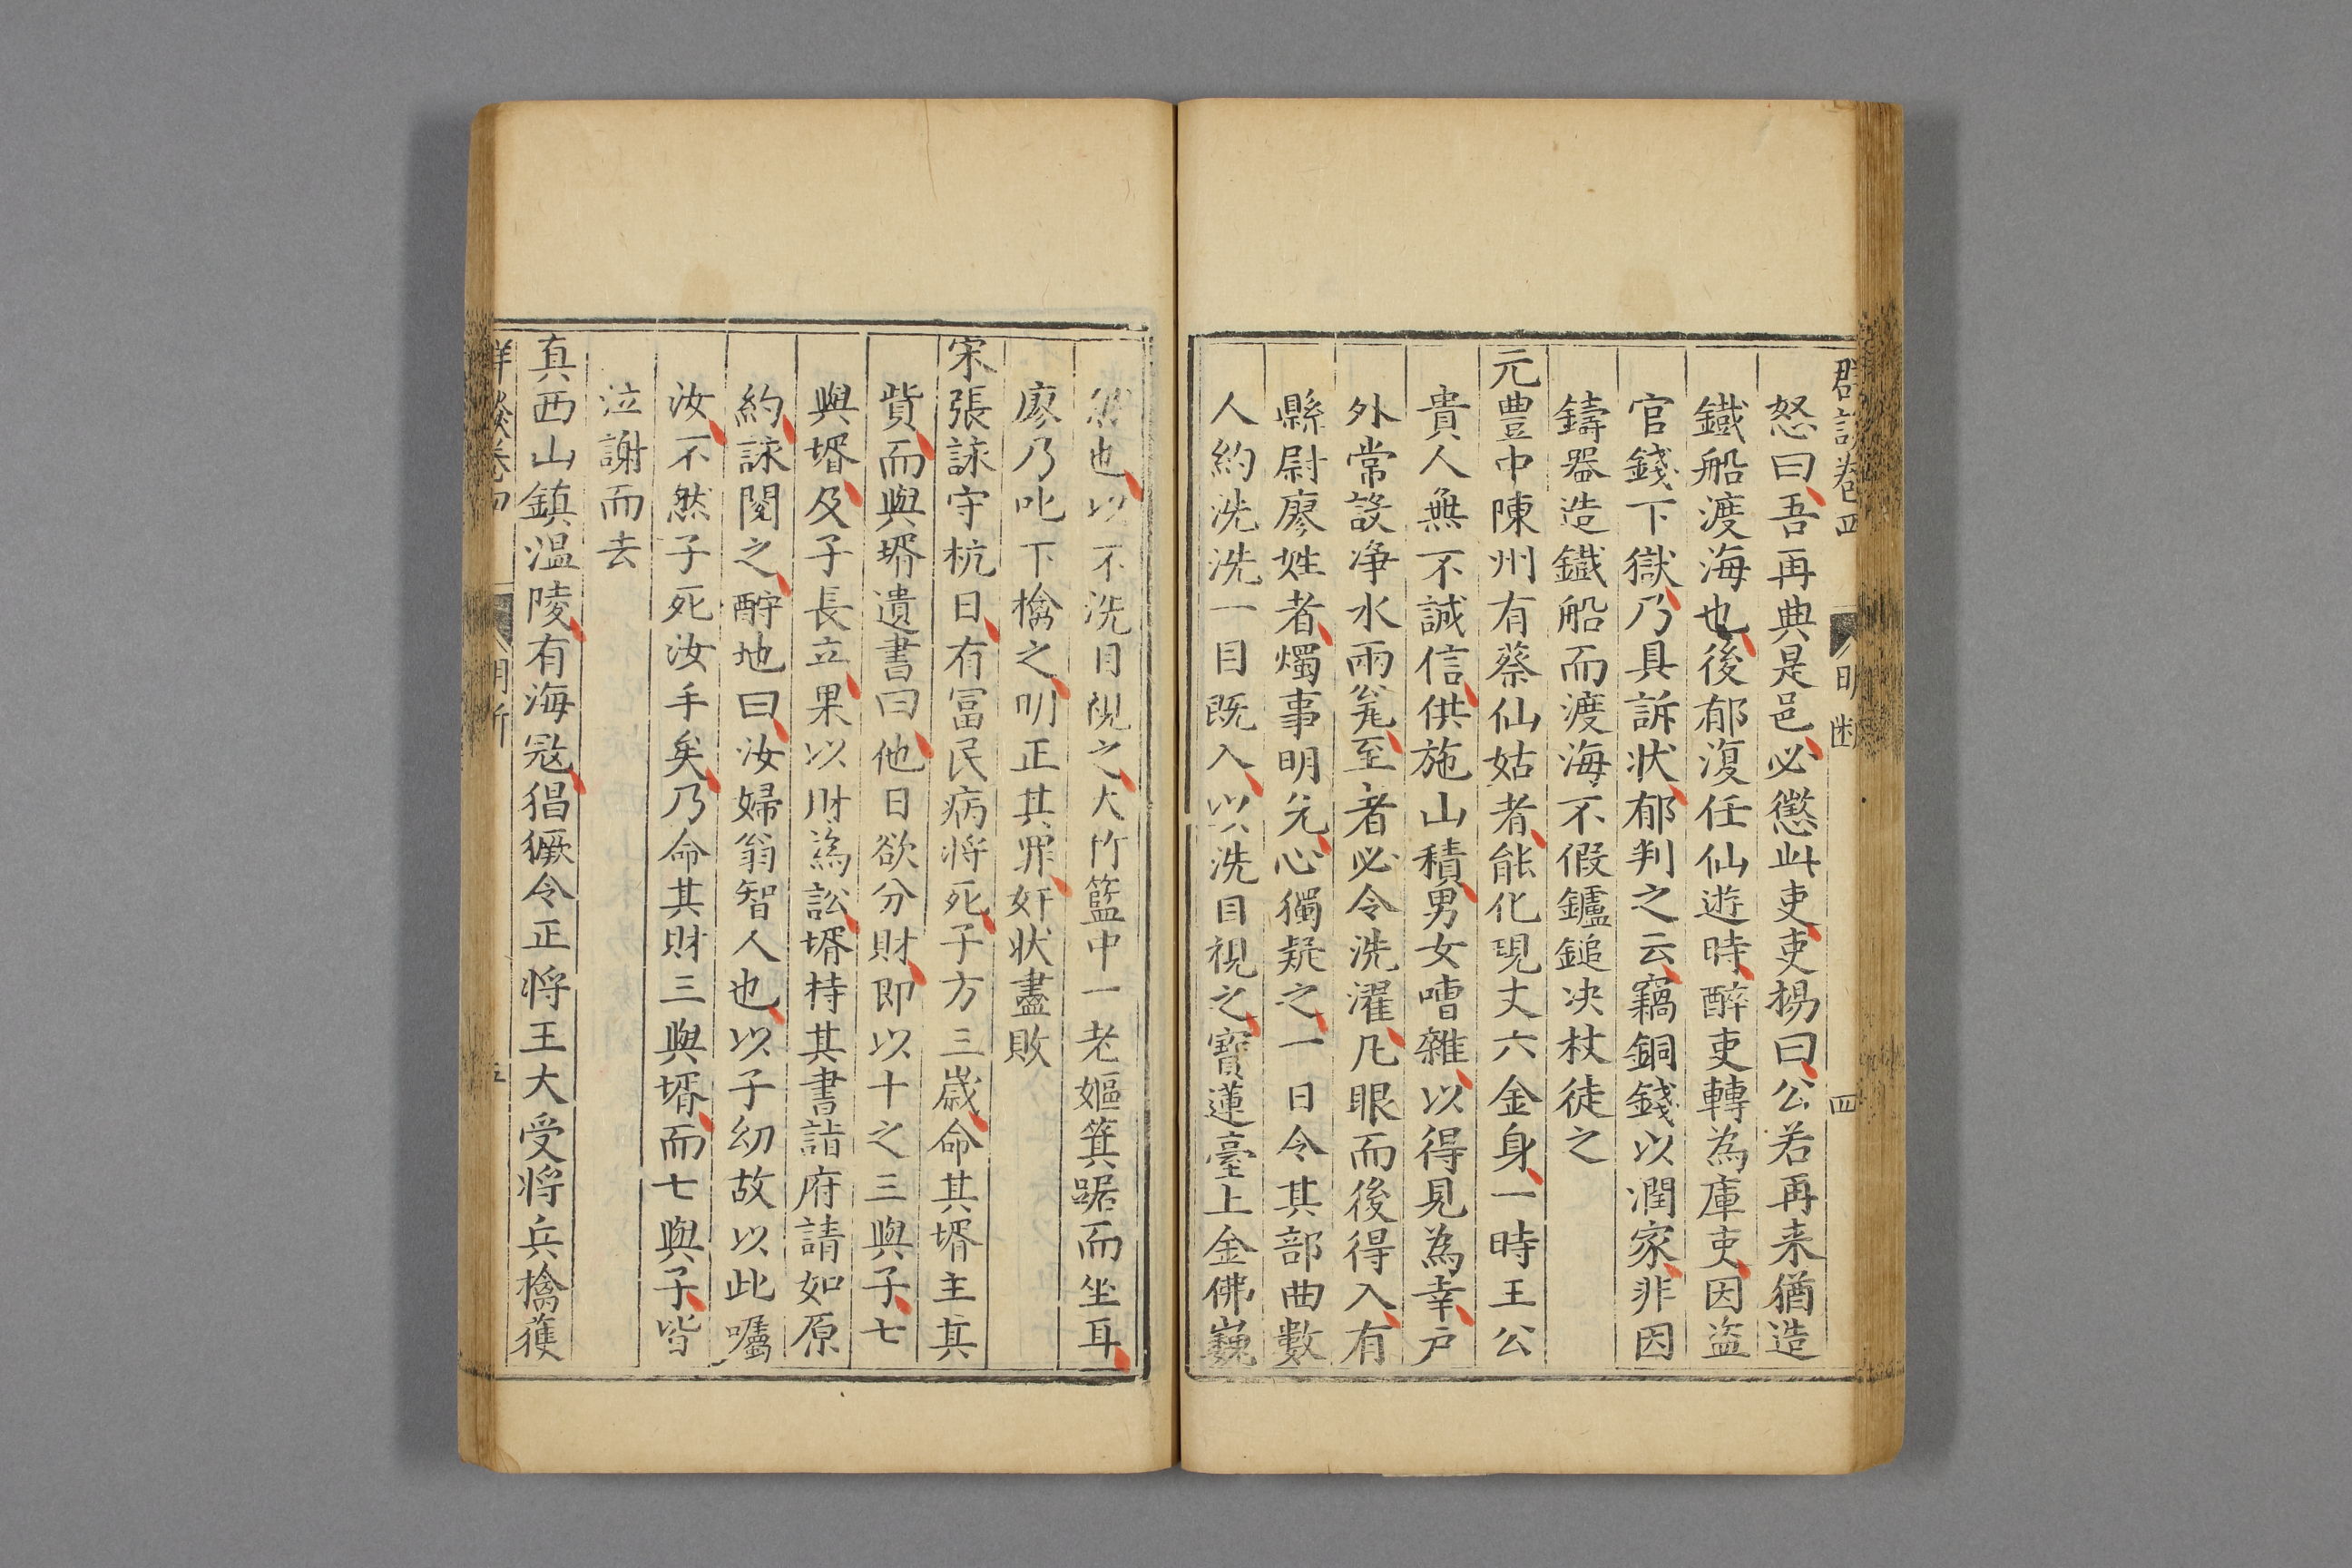 群談卷四 明断 四
怒曰吾再典是邑必懲此吏吏揚曰公若再来猶造
鐵船渡海也後郁復任仙遊時醉吏轉為庫吏因盗
官錢下獄乃具訴状郁判之云竊銅錢以潤家非因
鑄器造鐵船而渡海不假鑪鎚决杖徒之
元豊中陳州有蔡仙姑者能化現丈六金身一時王公
貴人無不誠信供施山積男女嘈雜以得見為幸户
外常設净水兩瓮至者必令洗濯凡眼而後得入有
縣尉廖姓者燭事明允心獨疑之一日令其部曲數
人約洗洗一目既入以洗目視之寶蓮臺上金佛巍
然也以不洗目視之大竹籃中一老嫗箕踞而坐耳
廖乃叱下擒之明正其罪奸状盡敗
宋張詠守杭日有冨民病将死子方三歲命其壻主其
貲而與壻遺書曰他日欲分財即以十之三與子七
與壻及子長立果以財為訟壻持其書詣府請如原
約詠閱之酹地曰汝婦翁智人也以子幼故以此囑
汝不然子死汝手矣乃命其財三與壻而七與子皆
泣謝而去
真西山鎮温陵有海冦猖獗令正将王大受将兵擒獲
卷四 明断